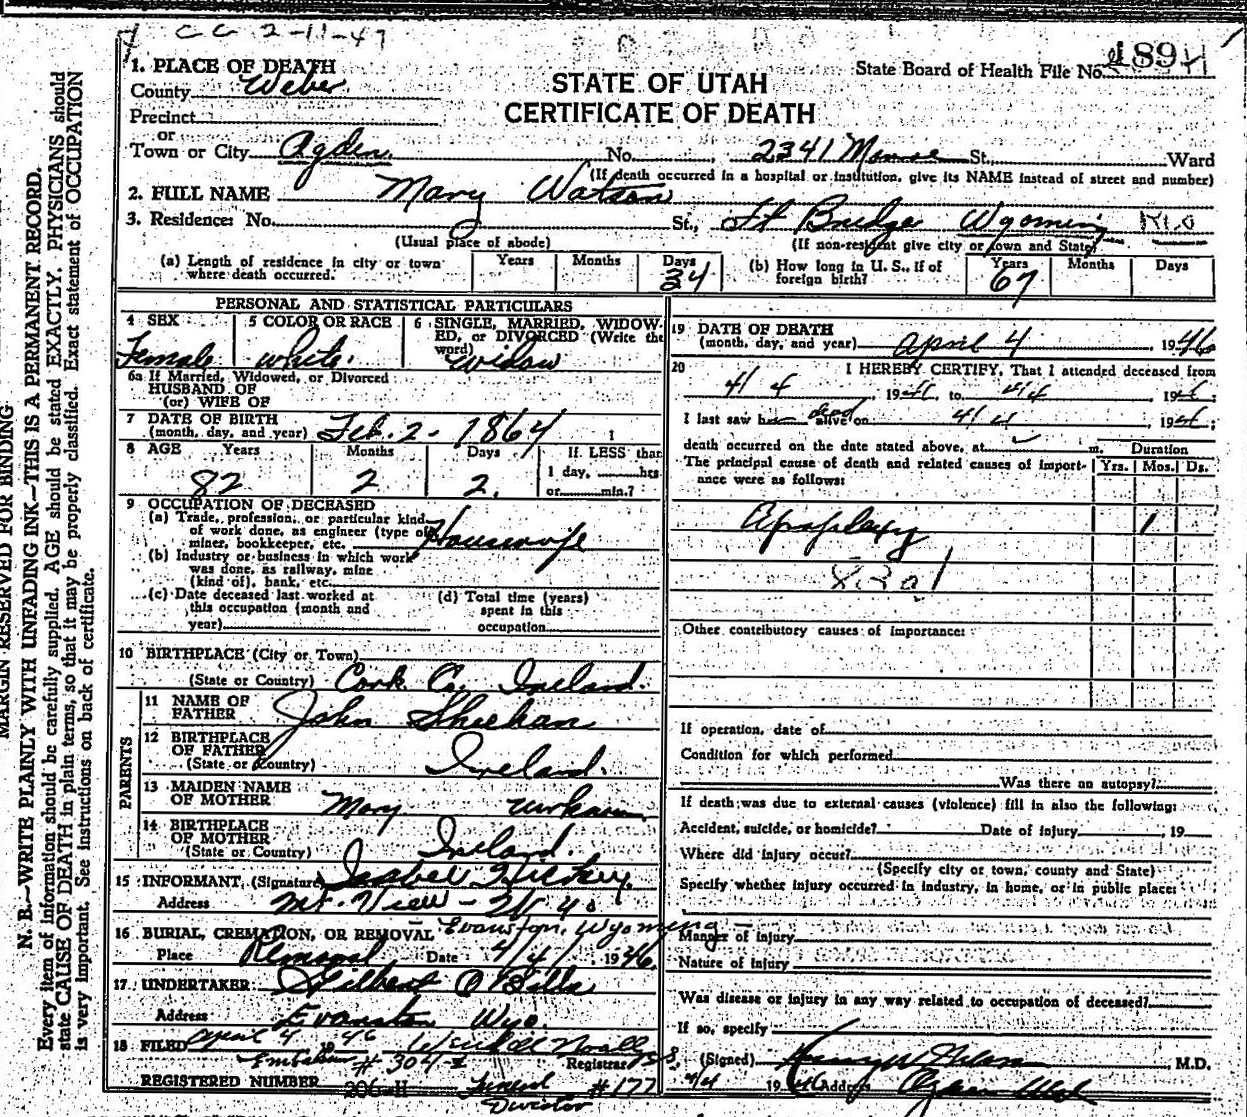 C C 2-11-47
1. PLACE OF DEATH
County Weber
Precinct
or
Town or City Ogden No. 2341 Monroe St. Ward
STATE OF UTAH
CERTIFICATE OF DEATH
State Board of Health File No. 189 H
(If death occurred in a hospital or institution, give its NAME instead of street and number)
2. FULL NAME Mary Watson
3. Residence: No. St., Ft Bridger Wyoming
(Usual place of abode) (If non-resident give city or town and State)
(a) Length of residence in city or town where death occurred. Years Months Days 34
(b) How long in U. S., if of foreign birth? Years 67 Months Days
PERSONAL AND STATISTICAL PARTICULARS
4 SEX Female
5 COLOR OR RACE white.
6 SINGLE, MARRIED, WIDOWED, or DIVORCED (Write the word) Widow
6a If Married, Widowed, or Divorced
HUSBAND OF
(or) WIFE OF
7 DATE OF BIRTH
(month, day, and year) Feb. 2 - 1864
8 AGE Years 82 Months 2 Days 2. If LESS than
1 day, hrs.
or min.?
9 OCCUPATION OF DECEASED
(a) Trade, profession, or particular kind
of work done, as engineer (type of
miner, bookkeeper, etc. Housewife
(b) Industry or business in which work
was done, as railway, mine
(kind of), bank, etc.
(c) Date deceased last worked at
this occupation (month and
year)
(d) Total time (years)
spent in this
occupation
10 BIRTHPLACE (City or Town)
(State or Country) Cork Co. Ireland.
PARENTS
11 NAME OF
FATHER John Sheehan
12 BIRTHPLACE
OF FATHER
(State or Country) Ireland.
13 MAIDEN NAME
OF MOTHER Mary unknown
14 BIRTHPLACE
OF MOTHER
(State or Country) Ireland.
15 INFORMANT, (Signature) Isabel Hickey.
Address Mt. View - Wyo
16 BURIAL, CREMATION, OR REMOVAL Evanston, Wyoming
Place Removal Date 4/4/, 1946
17 UNDERTAKER Gilbert O Bills
Address Evanston Wyo.
18 FILED April 4 1946 Registrar
Embalmer # 304-
REGISTERED NUMBER 206-H Funeral # 177
Director
19 DATE OF DEATH
(month, day, and year) April 4, 1946
20 I HEREBY CERTIFY, That I attended deceased from
4/4, 1946, to 4/4 1946;
I last saw her dead alive on 4/4, 1946;
death occurred on the date stated above, at m.
The principal cause of death and related causes of importance were as follows:
Duration
Yrs. Mos. Ds.
Apoplexy 1
83a1
Other contributory causes of importance:
If operation, date of
Condition for which performed
Was there an autopsy?
If death was due to external causes (violence) fill in also the following:
Accident, suicide, or homicide? Date of injury , 19
Where did injury occur?
(Specify city or town, county and State)
Specify whether injury occurred in industry, in home, or in public place:
Manner of injury
Nature of injury
Was disease or injury in any way related to occupation of deceased?
If so, specify
(Signed) M.D.
4/4 1946 Address Ogden Utah
MARGIN RESERVED FOR BINDING
N. B.—WRITE PLAINLY WITH UNFADING INK—THIS IS A PERMANENT RECORD.
Every item of information should be carefully supplied. AGE should be stated EXACTLY. PHYSICIANS should
state CAUSE OF DEATH in plain terms, so that it may be properly classified. Exact statement of OCCUPATION
is very important. See instructions on back of certificate.